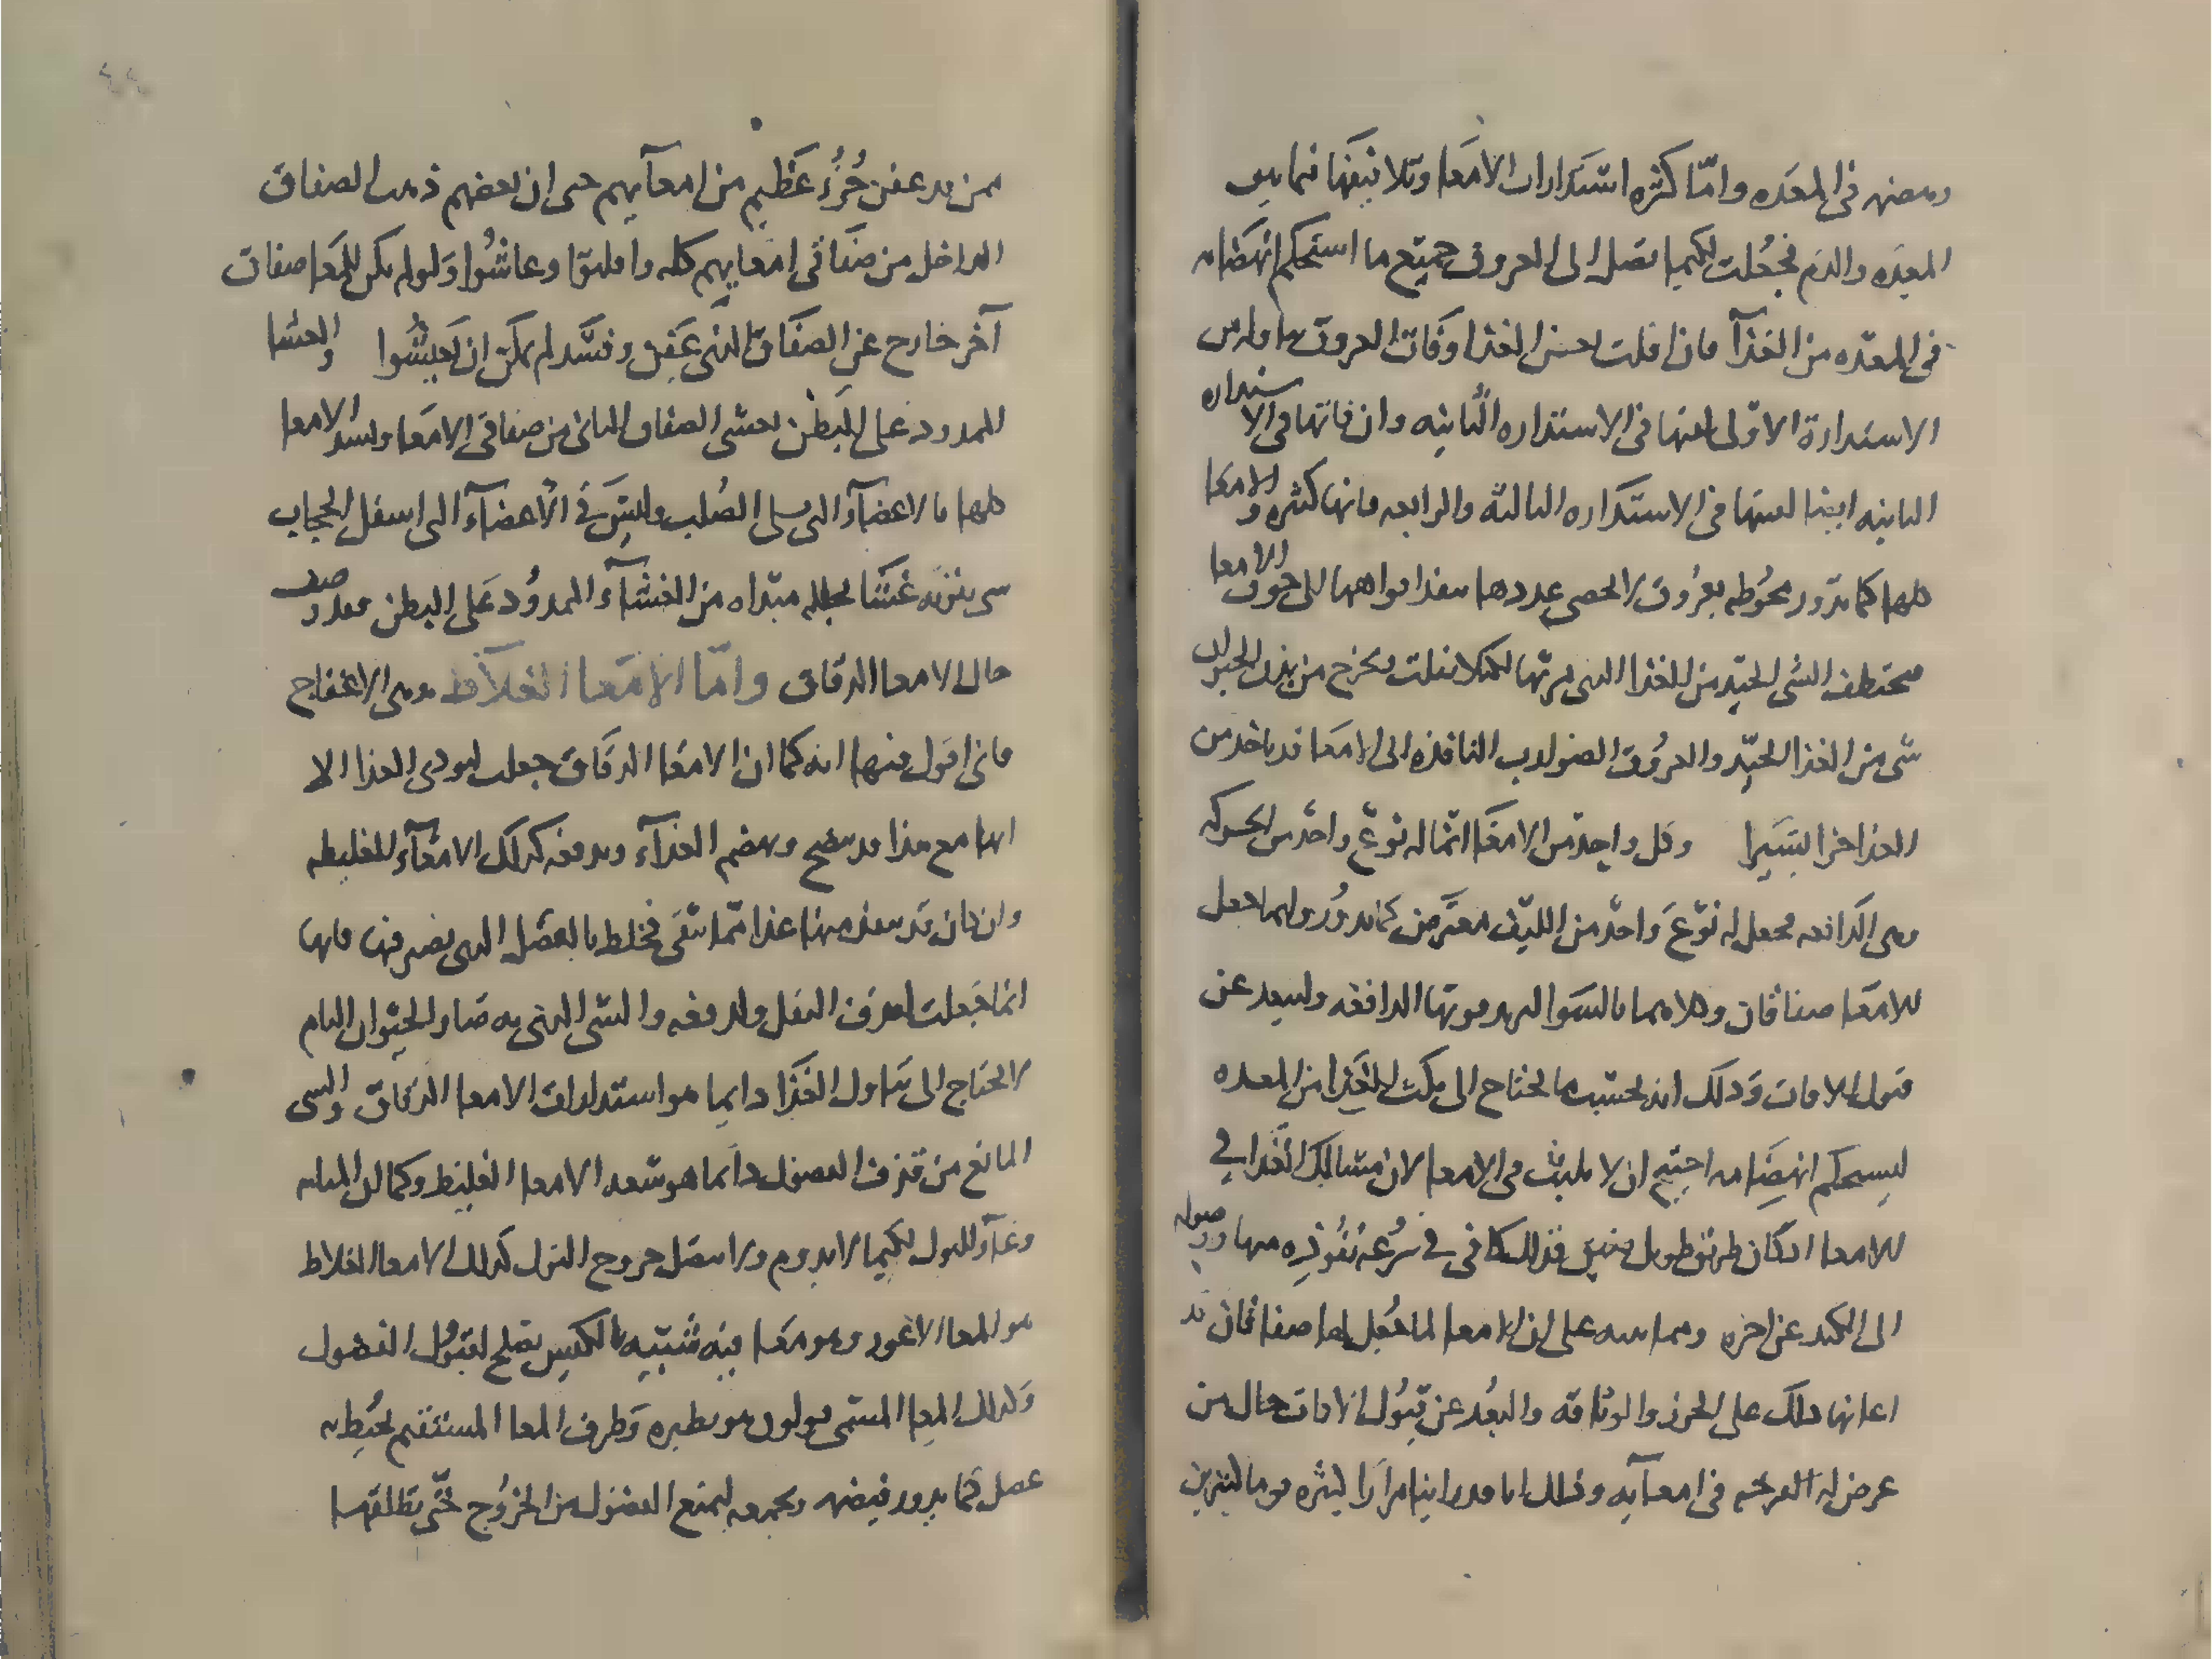 وهضمه في المعده وامّا كثره استدارات الامعا وتلافيفها فيما بين
المعده والدم فجُعلت لكيما تصل الى العروق جميع ما استحكم انهضامه
في المعده من الغذآ فان افلت بعض الغذا وفات العروق
الاستدارة الاولى لقيها في الاستداره الثانيه وان فاتها في الاستداره
الثانيه ايضا لقيتها في الاستداره الثالثه والرابعه فانها كثيره والامعا
كلها كما تدور محُوطه بعرُوق لا تحصى عددها تنفذ افواهها الى جوف الامعا
فتختطف الشي الجيّد من الغذا الذي يمر بها لكيلا يفلت ويخرج من بدن الحيوان
شي من الغذا الجيّد والعرُوق الضوارب النافذه الى الامعا قد تاخذ من
الغذا جزا يَسيرا وكل واحد من الامعَا انما له نوع واحد من الحركه
وهي الدافعه فجعل له نوعَ واحد من الليف معترض كما يدوُر وانما جعل
للامعَا صفاقان وكلاهما بالسَوا لتزيد قوتها الدافعه ولتبعد عن
قبول الافات وَذلك انه بحسب ما يحتاج الى مكث الغذا من المعده
ليستحكم انهضامه احتيج ان لا يلبث في الامعا لان مسالك الغذا في
الامعا اذ كان طريق طويل ضيق فذلك كافي في سُرعة نُفُوذِه منها ووصوله
الى الكبد عن اخره ومما يدل على ان الامعا لما جُعل لها صفاقان قد
اعانها ذلك على الحرز والوثاقه والبُعد عن قبُول الافات حال من
عرض له القرحه في امعآيه وذلك انا قد راينا مرارًا كثيره قوما كثيرين
ممن قد عفن جُزُء عَظيم من امعآيهم حتى ان بعضهم ذهب الصفاق
الداخل من صفاقي امعايهم كله وافلتوا وعاشُوا وَلو لم يكن للمعَا صفاق
آخر خارج عن الصفَاق الذي عَفِن وفسَد لم يمكن ان يَعيشُوا والغشا
الممدود على البَطن يغشى الصفاق الثاني من صفاقي الامعَا ويشد الامعا
كلها بالاعضآء التي تلي الصُلب وليسَ في الاعضآء التي اسفل الحجاب
شي يعزيه غشًا يجلله مبتداه من الغشآء الممدوُد عَلى البطن فقد وصف
حال الامعا الدقاق وامّا الامَعا الغلاظ وهي الاعفاج
فاني اقول فيها انه كما ان الامعَا الدقَاق جعلت لتودي الغذا الا
انها مع هذا قد تنضج وتهضم الغذآء وتدفعه كذلك الامعآء الغليظه
وان كان قد ينفذ منها غذا ممّا بَقي مختلط بالفضل الذي يصير فيها فانها
انما جُعلت لقذف الثفل ولدفعه والشي الذي به صَار الحيوان التام
لا يحتَاج الى تناول الغَذا دايما هو استدارات الامعا الدقاق والشي
المانع من قذف الفضول دايما هو سعه الامعا الغليظ وكما ان المثانه
وعآء للبول لكيما لا يدوم ولا يتصل خروج البول كذلك الامعا الغلاظ
هو المعا الاعور وهو معَا فيه شَبيه بالكيس يصلح لقبُول الفضول
وَكذلك المِعا المسمى قولون هو نظيره وَطرف المعا المستقيم يحُيط به
عضل كما يدور فيضمه ويجمعه ليمنع الفضول من الخرُوج حتّى تطلقها